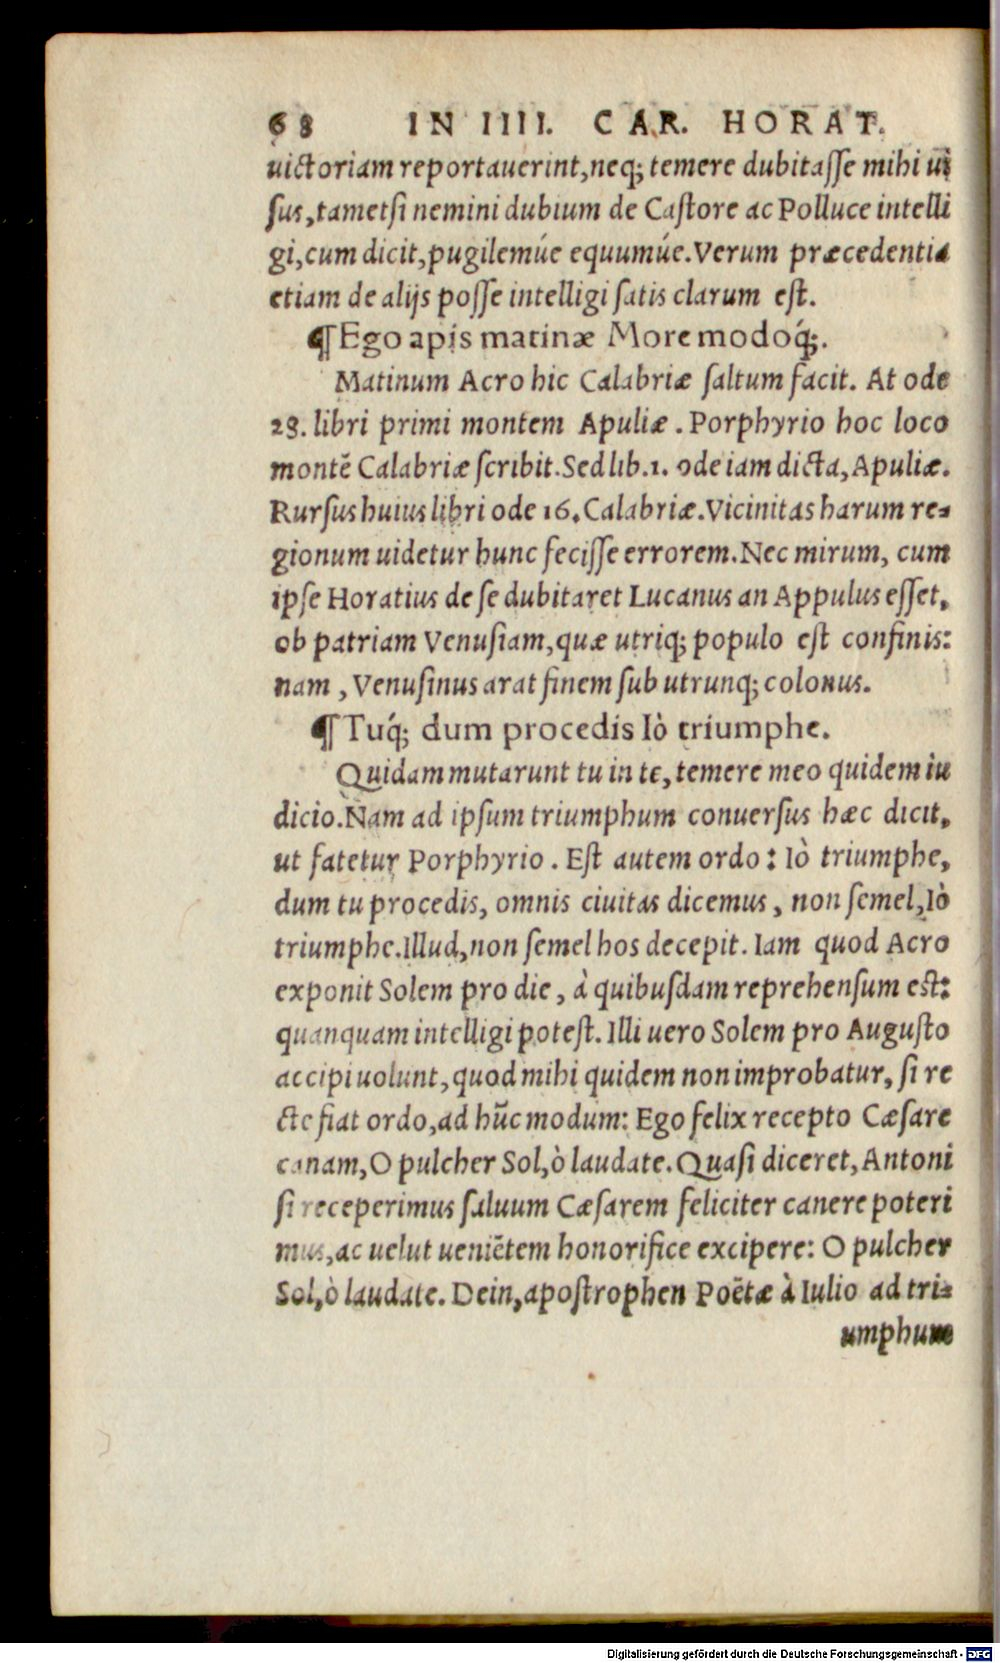 68 IN IIII. CAR. HORAT.
uictoriam reportauerint,neq; temere dubitasse mihi ui
sus,tametsi nemini dubium de Castore ac Polluce intelli
gi,cum dicit,pugilemúe equumúe.Verum præcedentia
etiam de alijs posse intelligi satis clarum est.
¶Ego apis matinæ More modoq́;.
Matinum Acro hic Calabriæ saltum facit. At ode
28. libri primi montem Apuliæ . Porphyrio hoc loco
montē Calabriæ scribit.Sed lib.1. ode iam dicta,Apuliæ.
Rursus huius libri ode 16.Calabriæ.Vicinitas harum re-
gionum uidetur hunc fecisse errorem.Nec mirum, cum
ipse Horatius de se dubitaret Lucanus an Appulus esset,
ob patriam Venusiam,quæ utriq; populo est confinis:
nam , Venusinus arat finem sub utrunq; colonus.
¶Tuq́; dum procedis Iò triumphe.
Quidam mutarunt tu in te,temere meo quidem iu
dicio.Nam ad ipsum triumphum conuersus hæc dicit,
ut fatetur Porphyrio . Est autem ordo : Iò triumphe,
dum tu procedis, omnis ciuitas dicemus , non semel,Iò
triumphe.Illud,non semel hos decepit. Iam quod Acro
exponit Solem pro die , à quibusdam reprehensum est:
quanquam intelligi potest. Illi uero Solem pro Augusto
accipi uolunt,quod mihi quidem non improbatur, si re
cte fiat ordo,ad hūc modum: Ego felix recepto Cæsare
canam,O pulcher Sol,ò laudate. Quasi diceret, Antoni
si receperimus saluum Cæsarem feliciter canere poteri
mus,ac uelut ueniētem honorifice excipere: O pulcher
Sol,ò laudate. Dein,apostrophen Poētæ à Iulio ad tri-
umphum
Digitalisierung gefördert durch die Deutsche Forschungsgemeinschaft - DFG